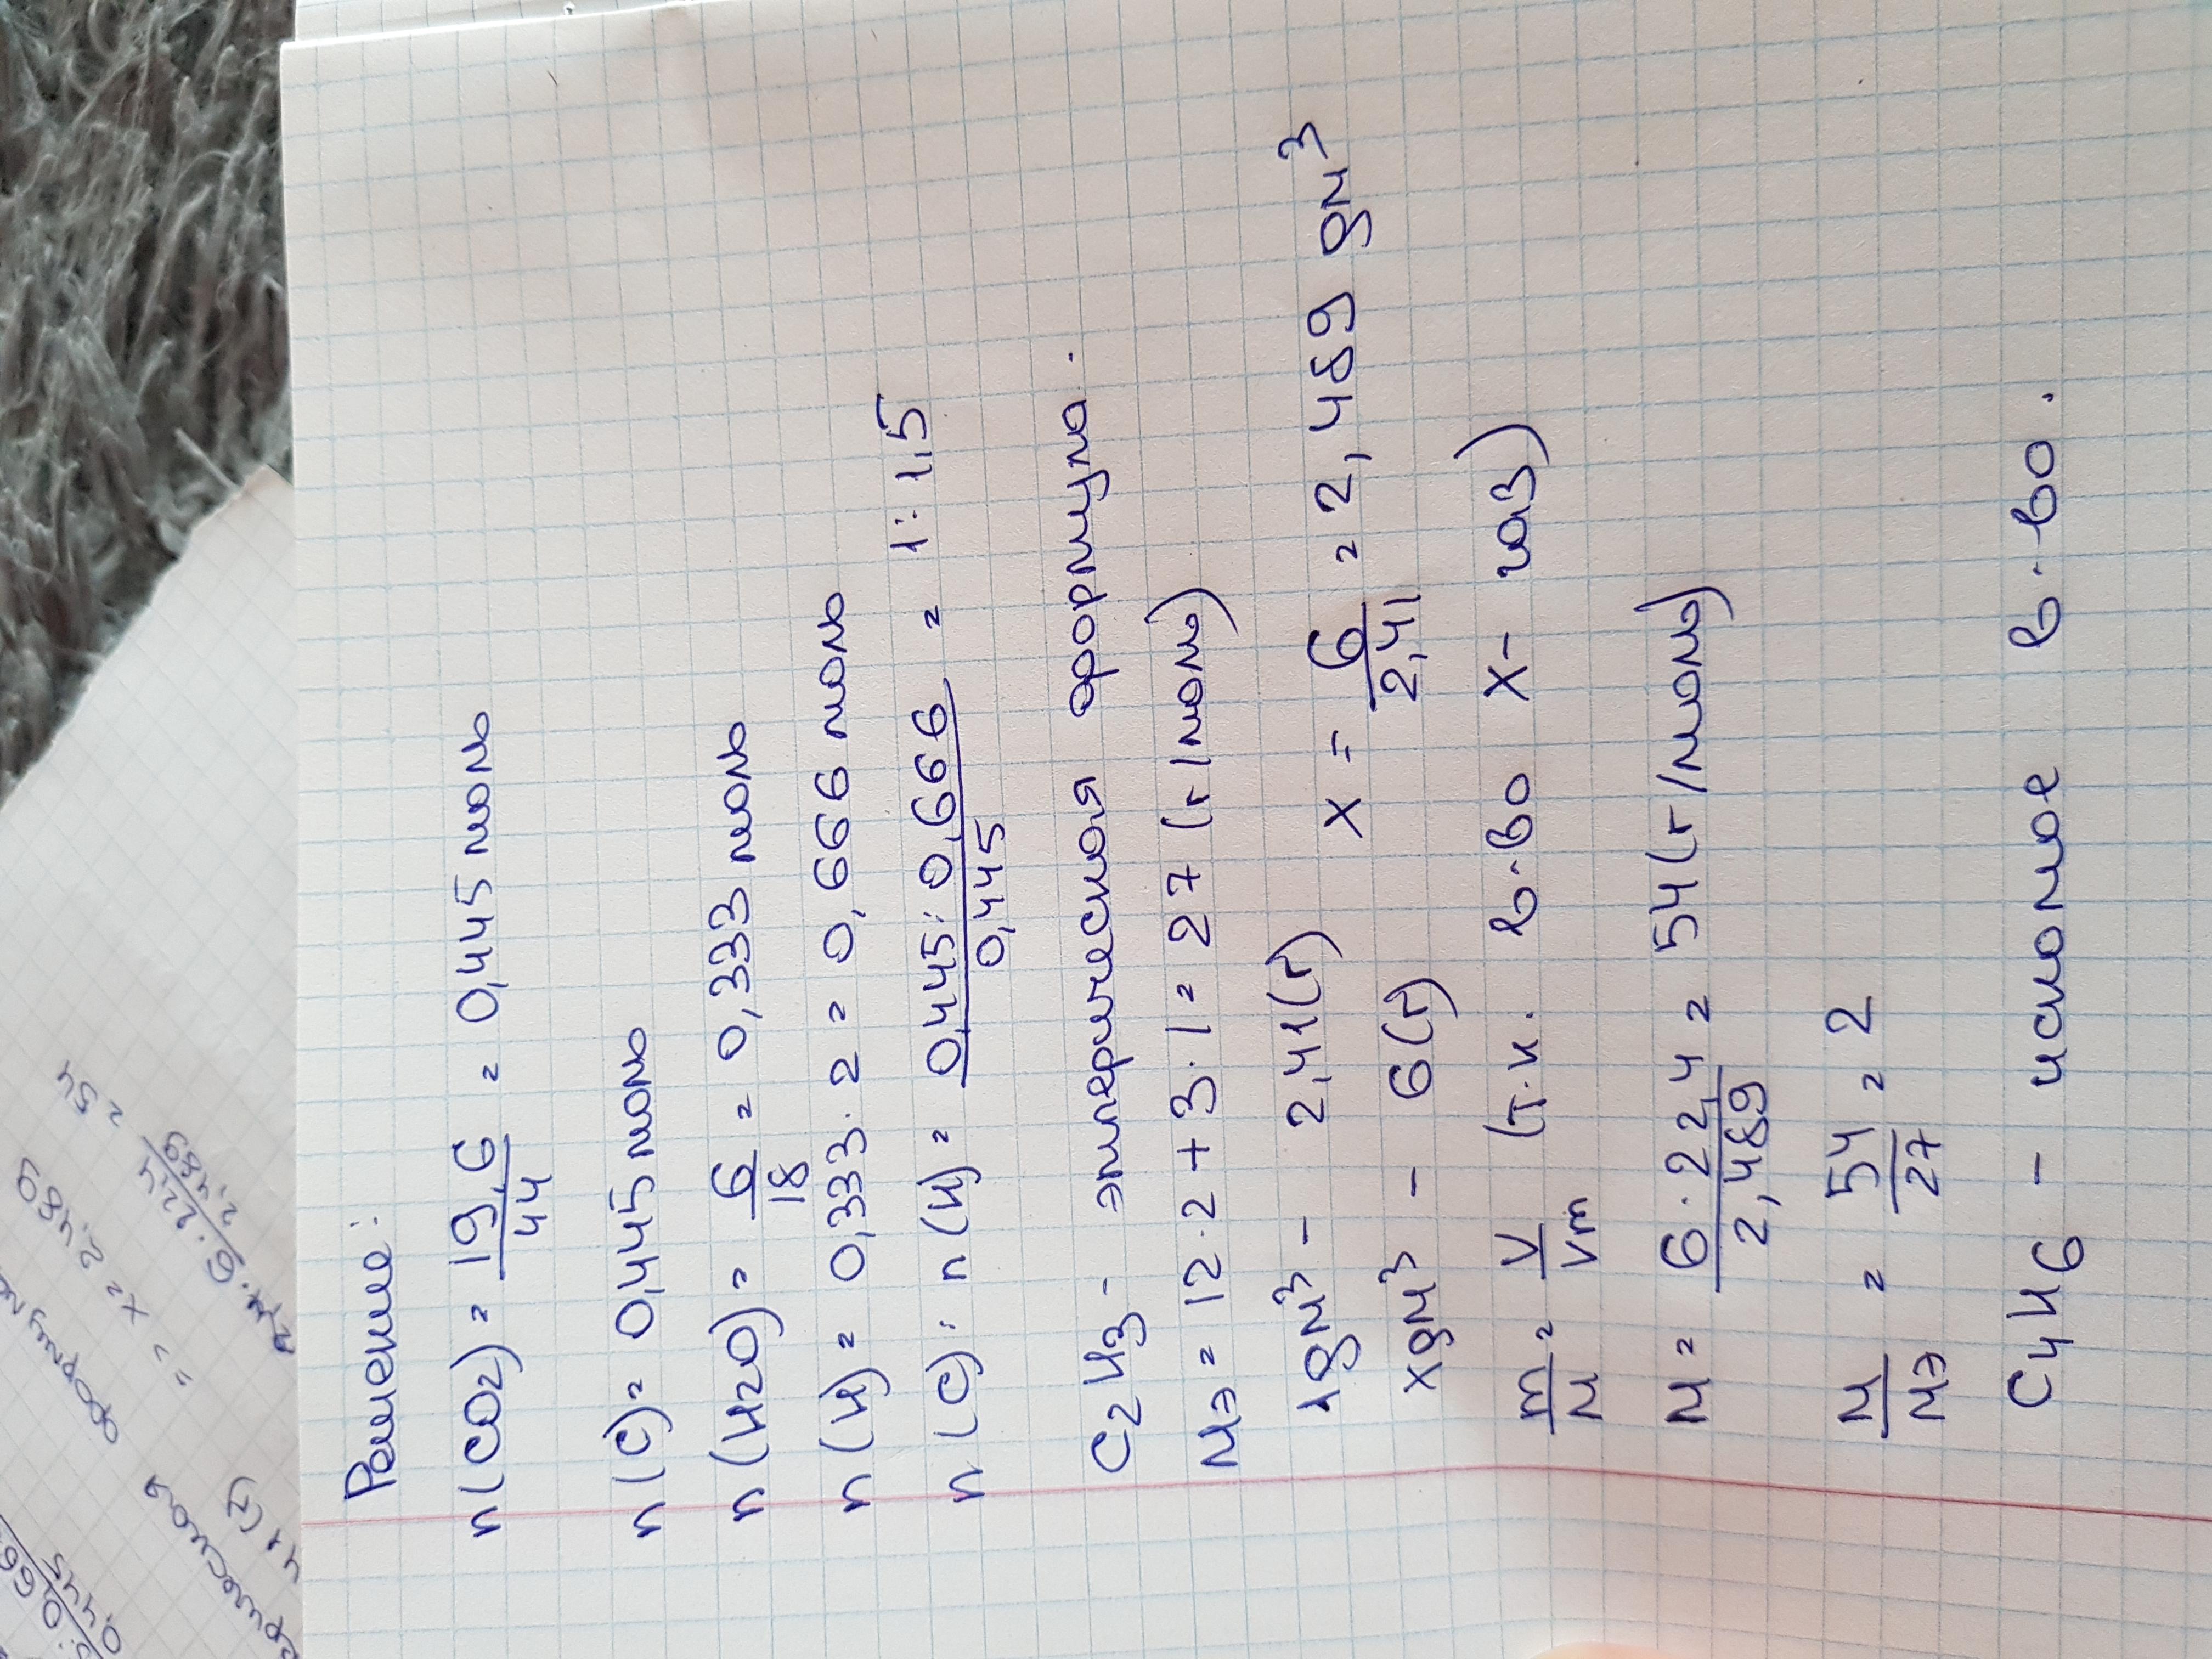 Решение:
n(CO2) = 19,6/44 = 0,445 моль
n(C) = 0,445 моль
n(H2O) = 6/18 = 0,333 моль
n(H) = 0,333 · 2 = 0,666 моль
n(C) : n(H) = 0,445 : 0,666 / 0,445 = 1 : 1,5
C2H3 - эмперическая формула.
Mэ = 12 · 2 + 3 · 1 = 27 (г/моль)
1дм³ - 2,41(г) x = 6/2,41 = 2,489 дм³
xдм³ - 6(г)
m/M = V/Vm (т.к. в-во X - газ)
M = 6 · 22,4 / 2,489 = 54 (г/моль)
M/Mэ = 54/27 = 2
C4H6 - искомое в-во.
формула
=> x = 2,489
6 · 22,4 / 2,489 = 54